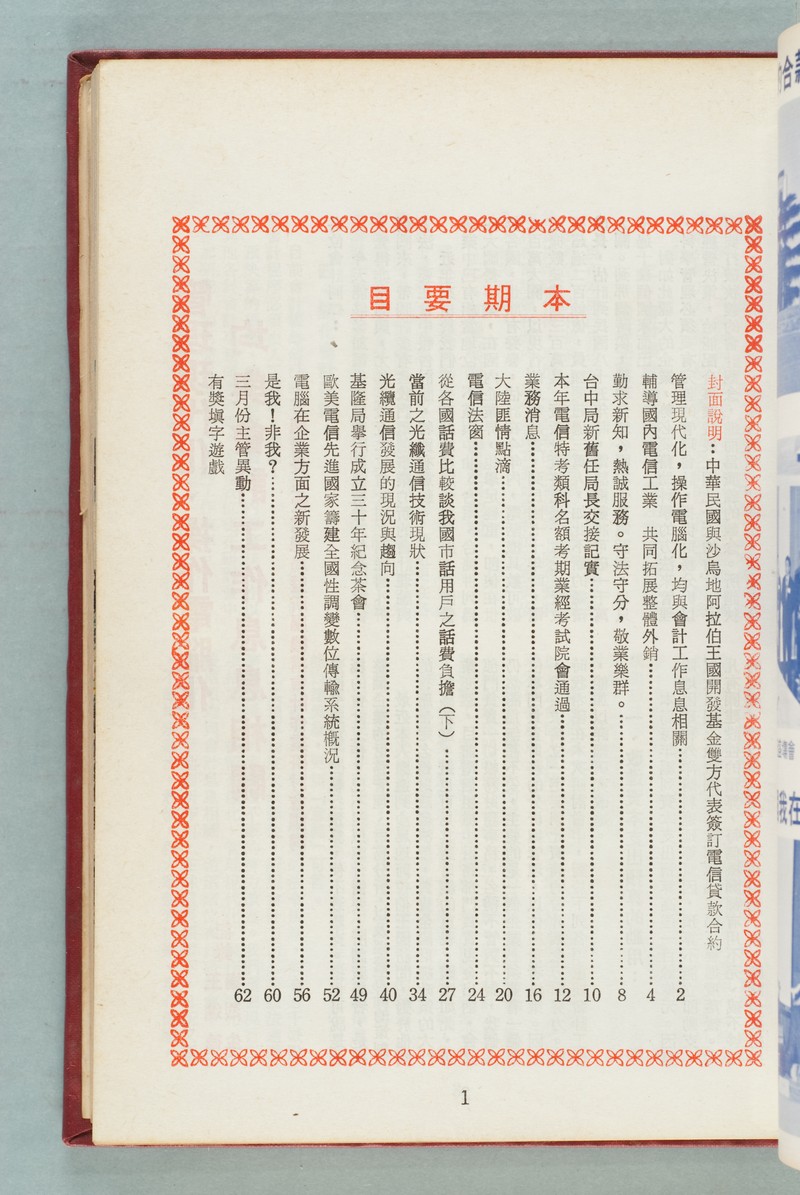 本期要目
封面說明：中華民國與沙烏地阿拉伯王國開發基金雙方代表簽訂電信貸款合約
管理現代化，操作電腦化，均與會計工作息息相關⋯⋯2
輔導國內電信工業　共同拓展整體外銷⋯⋯4
勤求新知，熱誠服務。守法守分，敬業樂群。⋯⋯8
台中局新舊任局長交接記實⋯⋯10
本年電信特考類科名額考期業經考試院會通過⋯⋯12
業務消息⋯⋯16
大陸匪情點滴⋯⋯20
電信法窗⋯⋯24
從各國話費比較談我國市話用戶之話費負擔（下）⋯⋯27
當前之光纖通信技術現狀⋯⋯34
光纜通信發展的現況與趨向⋯⋯40
基隆局舉行成立三十年紀念茶會⋯⋯49
歐美電信先進國家籌建全國性調變數位傳輸系統概況⋯⋯52
電腦在企業方面之新發展⋯⋯56
是我！非我？⋯⋯60
三月份主管異動⋯⋯62
有獎填字遊戲
1
我在